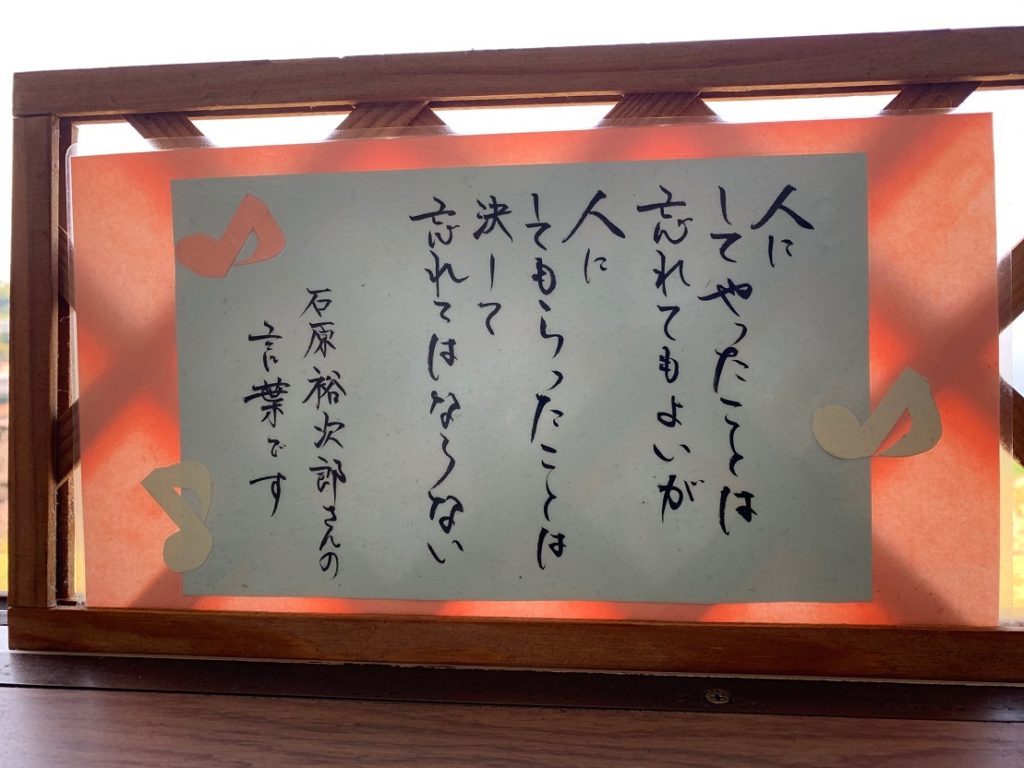 人に
してやったことは
忘れてもよいが
人に
してもらったことは
決して
忘れてはならない
石原裕次郎さんの
言葉です